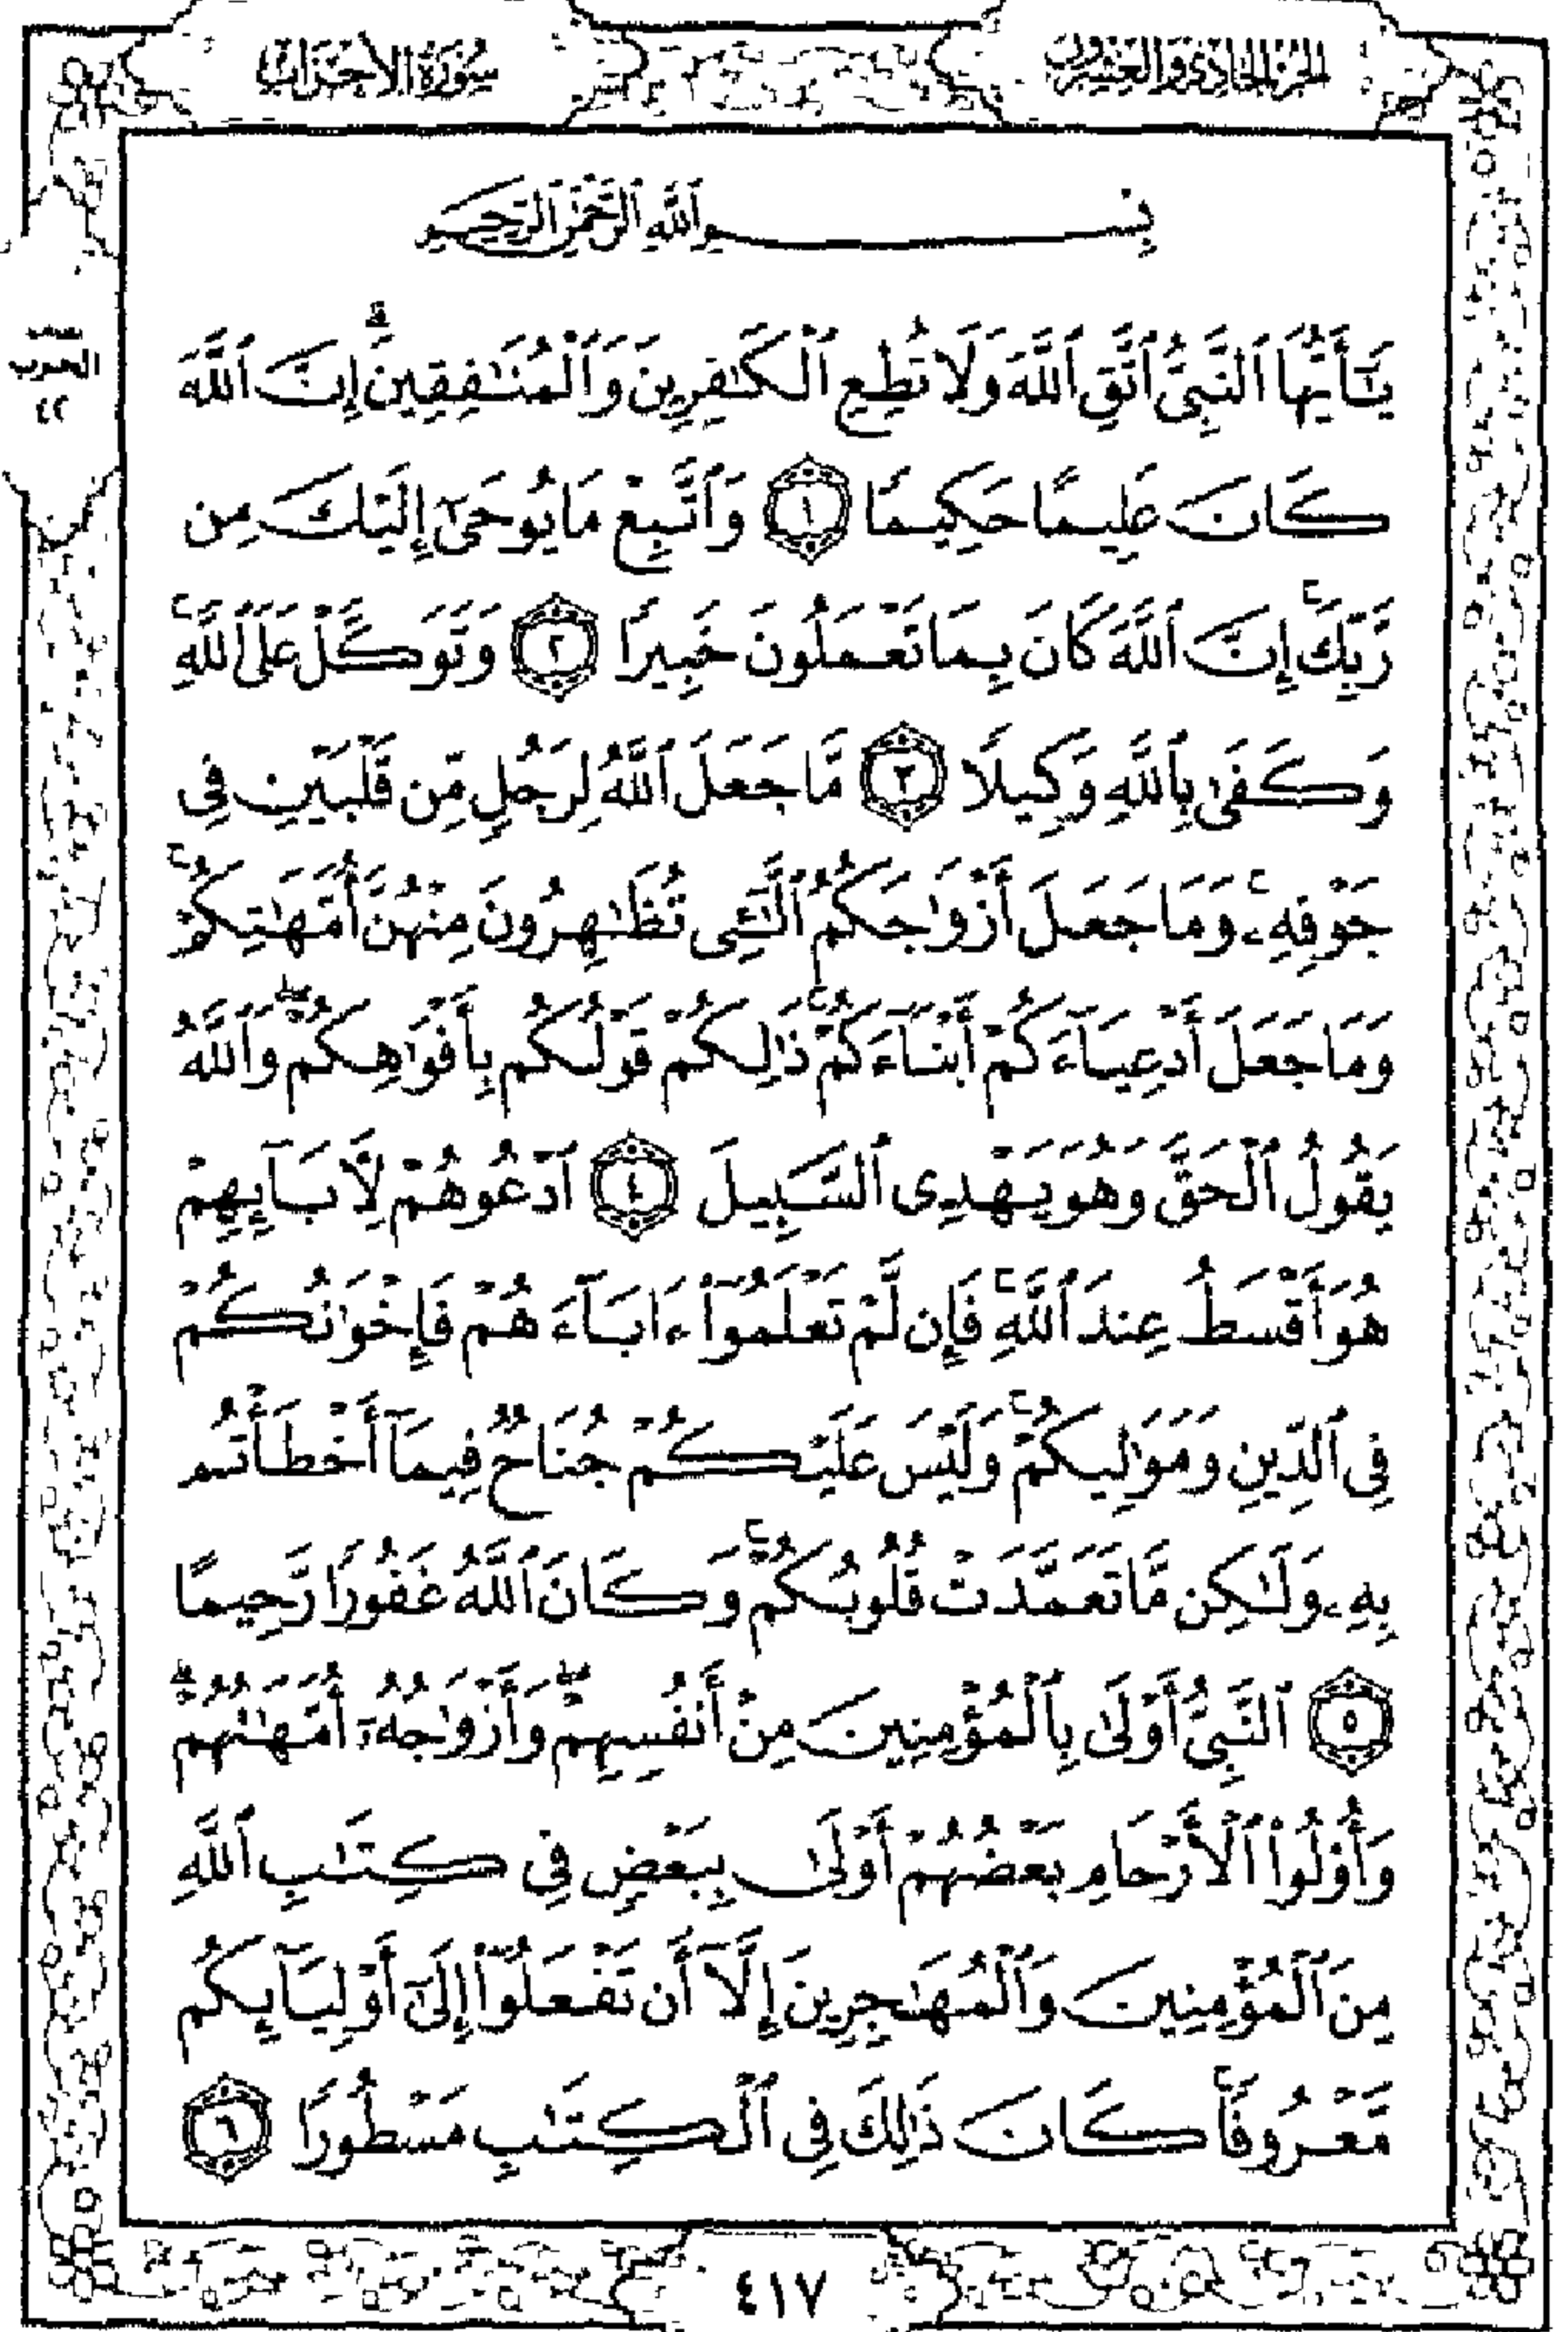 الجزء الحادي والعشرون
سورة الأحزاب
بِسْمِ ٱللَّهِ ٱلرَّحْمَٰنِ ٱلرَّحِيمِ
الحزب
٤٢
يَٰٓأَيُّهَا ٱلنَّبِىُّ ٱتَّقِ ٱللَّهَ وَلَا تُطِعِ ٱلْكَٰفِرِينَ وَٱلْمُنَٰفِقِينَ ۗ إِنَّ ٱللَّهَ
كَانَ عَلِيمًا حَكِيمًا ١ وَٱتَّبِعْ مَا يُوحَىٰٓ إِلَيْكَ مِن
رَّبِّكَ ۚ إِنَّ ٱللَّهَ كَانَ بِمَا تَعْمَلُونَ خَبِيرًا ٢ وَتَوَكَّلْ عَلَى ٱللَّهِ ۚ
وَكَفَىٰ بِٱللَّهِ وَكِيلًا ٣ مَّا جَعَلَ ٱللَّهُ لِرَجُلٍ مِّن قَلْبَيْنِ فِى
جَوْفِهِۦ ۚ وَمَا جَعَلَ أَزْوَٰجَكُمُ ٱلَّٰٓـِٔى تُظَٰهِرُونَ مِنْهُنَّ أُمَّهَٰتِكُمْ ۚ
وَمَا جَعَلَ أَدْعِيَآءَكُمْ أَبْنَآءَكُمْ ۚ ذَٰلِكُمْ قَوْلُكُم بِأَفْوَٰهِكُمْ ۖ وَٱللَّهُ
يَقُولُ ٱلْحَقَّ وَهُوَ يَهْدِى ٱلسَّبِيلَ ٤ ٱدْعُوهُمْ لِـَٔابَآئِهِمْ
هُوَ أَقْسَطُ عِندَ ٱللَّهِ ۚ فَإِن لَّمْ تَعْلَمُوٓا۟ ءَابَآءَهُمْ فَإِخْوَٰنُكُمْ
فِى ٱلدِّينِ وَمَوَٰلِيكُمْ ۚ وَلَيْسَ عَلَيْكُمْ جُنَاحٌ فِيمَآ أَخْطَأْتُم
بِهِۦ وَلَٰكِن مَّا تَعَمَّدَتْ قُلُوبُكُمْ ۚ وَكَانَ ٱللَّهُ غَفُورًا رَّحِيمًا
٥ ٱلنَّبِىُّ أَوْلَىٰ بِٱلْمُؤْمِنِينَ مِنْ أَنفُسِهِمْ ۖ وَأَزْوَٰجُهُۥٓ أُمَّهَٰتُهُمْ ۗ
وَأُو۟لُوا۟ ٱلْأَرْحَامِ بَعْضُهُمْ أَوْلَىٰ بِبَعْضٍ فِى كِتَٰبِ ٱللَّهِ
مِنَ ٱلْمُؤْمِنِينَ وَٱلْمُهَٰجِرِينَ إِلَّآ أَن تَفْعَلُوٓا۟ إِلَىٰٓ أَوْلِيَآئِكُم
مَّعْرُوفًا ۚ كَانَ ذَٰلِكَ فِى ٱلْكِتَٰبِ مَسْطُورًا ٦
٤١٧